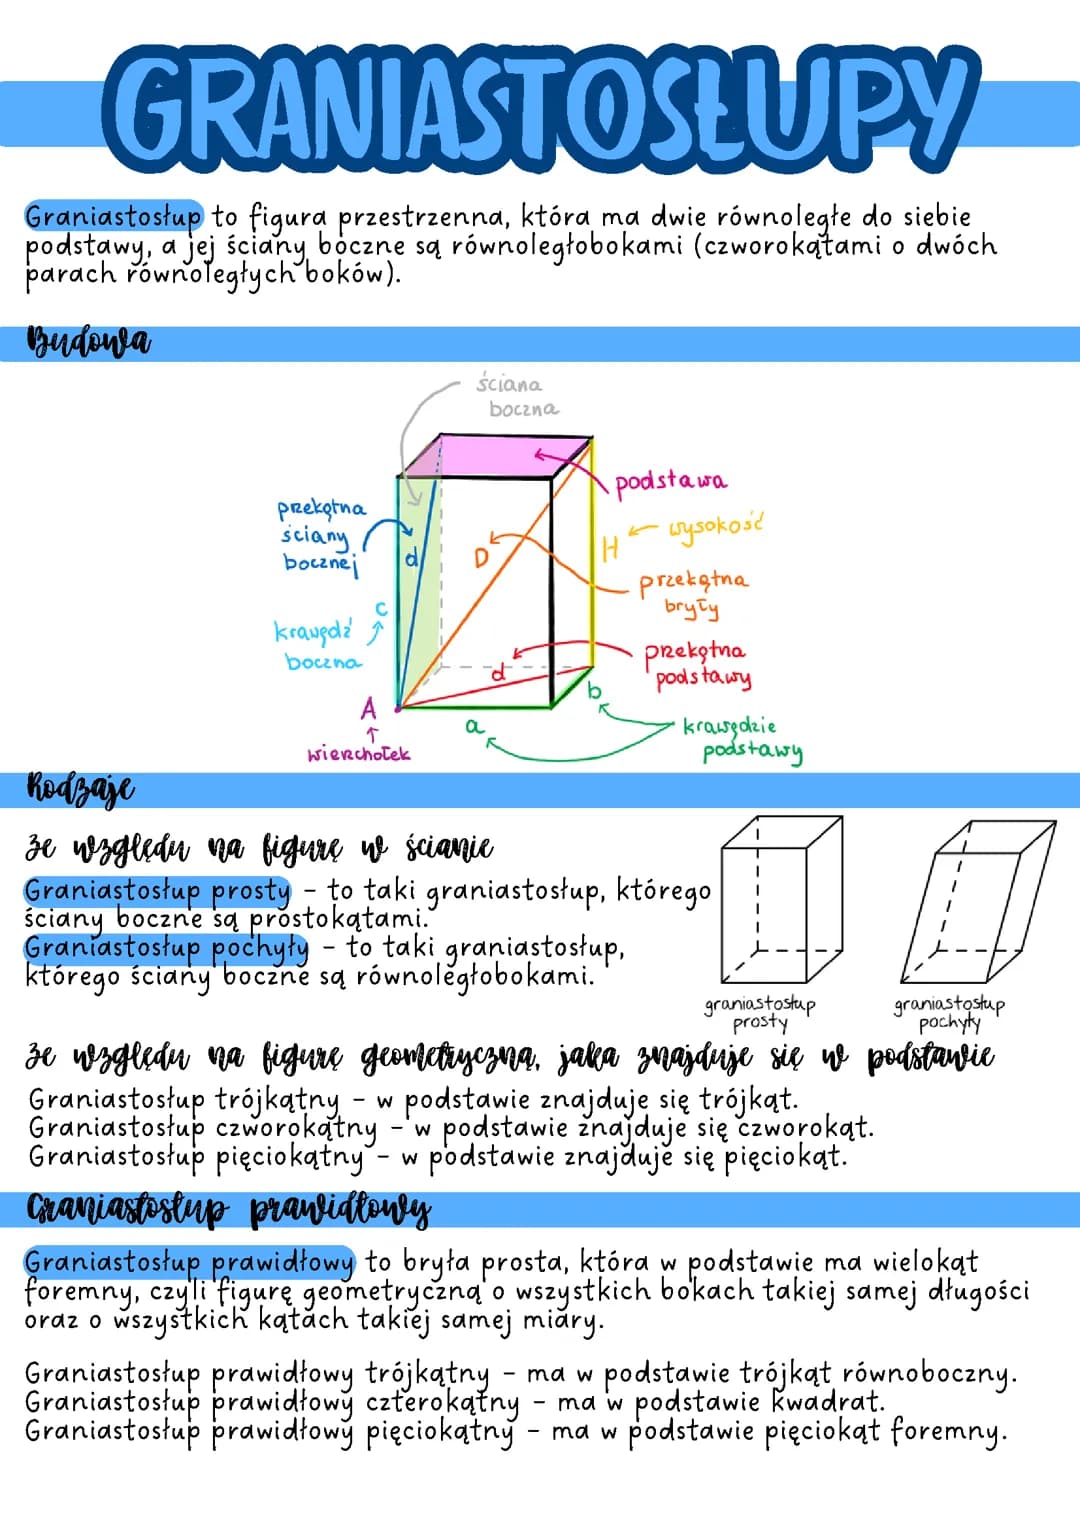 GRANIASTOSŁUPY
Graniastosłup to figura przestrzenna, która ma dwie równoległe do siebie
podstawy, a jej ściany boczne są równoległobokami (czworokątami o dwóch
parach równoległych boków).
Budowa
ściana
boczna
podstawa
przekątna
ściany
bocznej
d
D
H
wysokość
przekątna
bryły
c
krawędź
boczna
przekątna
podstawy
d
b
A
a
wierzchołek
krawędzie
podstawy
Rodzaje
Ze względu na figurę w ścianie
Graniastosłup prosty – to taki graniastosłup, którego
ściany boczne są prostokątami.
Graniastosłup pochyły – to taki graniastosłup,
którego ściany boczne są równoległobokami.
graniastosłup
prosty
graniastosłup
pochyły
Ze względu na figurę geometryczną, jaka znajduje się w podstawie
Graniastosłup trójkątny – w podstawie znajduje się trójkąt.
Graniastosłup czworokątny – w podstawie znajduje się czworokąt.
Graniastosłup pięciokątny – w podstawie znajduje się pięciokąt.
Graniastosłup prawidłowy
Graniastosłup prawidłowy to bryła prosta, która w podstawie ma wielokąt
foremny, czyli figurę geometryczną o wszystkich bokach takiej samej długości
oraz o wszystkich kątach takiej samej miary.
Graniastosłup prawidłowy trójkątny – ma w podstawie trójkąt równoboczny.
Graniastosłup prawidłowy czterokątny – ma w podstawie kwadrat.
Graniastosłup prawidłowy pięciokątny – ma w podstawie pięciokąt foremny.